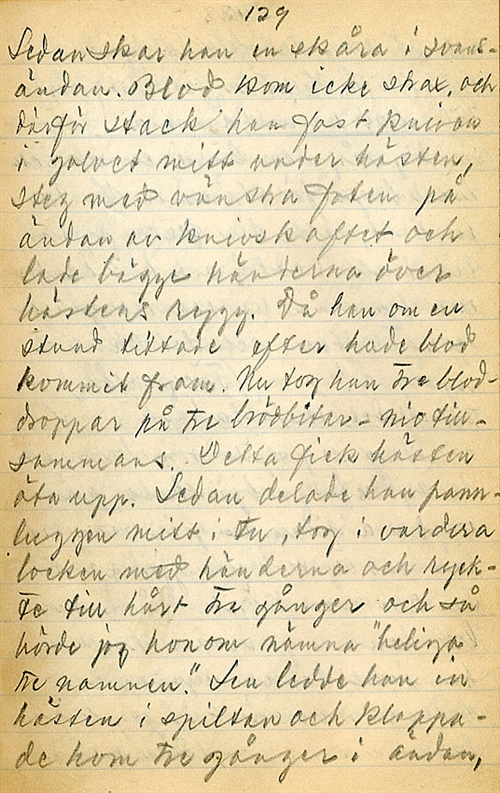 129
Sedan skar han en skåra i svans-
ändan. Blod kom icke strax, och
därför stack han fast kniven
i golvet mitt under hästen,
steg med vänstra foten på
ändan av knivskaftet och
lade bägge händerna över
hästens rygg. Då han om en
stund tittade efter hade blod
kommit fram. Nu tog han tre blod-
droppar på tre brödbitar - nio till-
sammans. Detta fick hästen
äta upp. Sedan delade han pann-
luggen mitt i tu, tog i vardera
locken med händerna och ryck-
te till hårt tre gånger och så
hörde jag honom nämna "heliga
tre namnen." Sen ledde han in
hästen i spiltan och klappa-
de hom tre gånger i ändan,